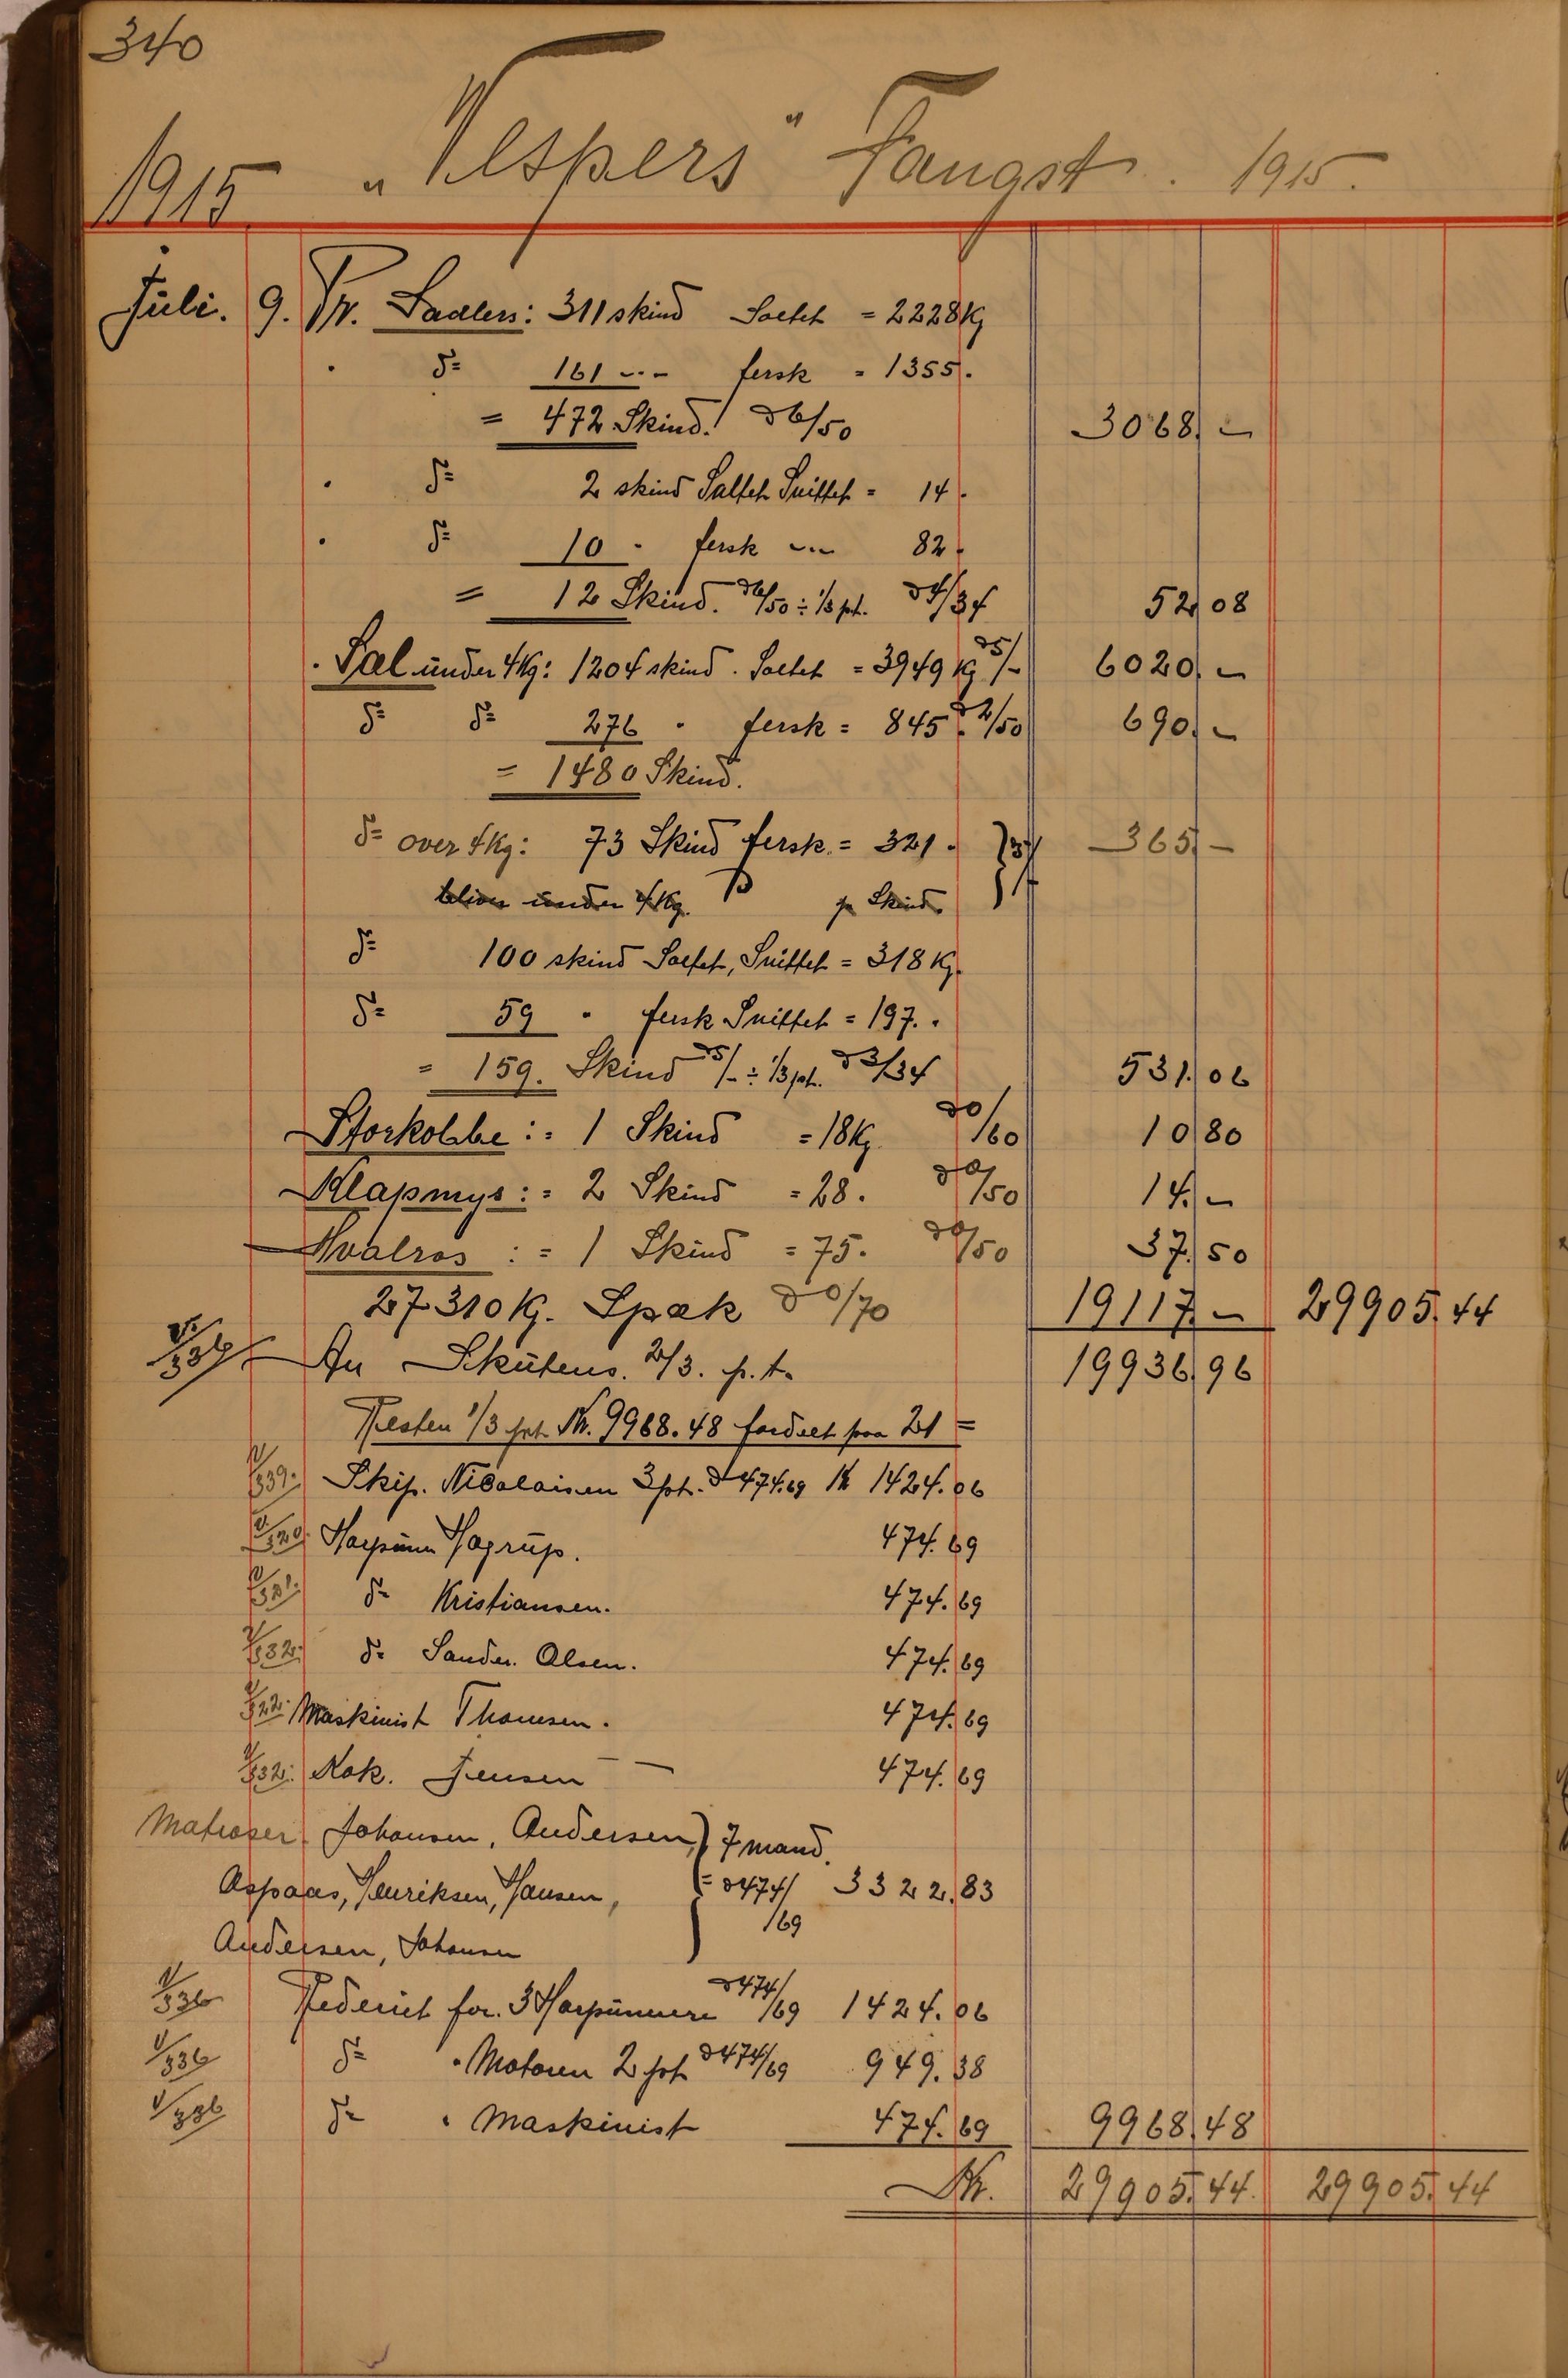 340
1915 „Vespers" Fangst. 1915.
Juli. 9. Pr. Sadlers: 311 skind Saltet = 2228 Kg
" d= 161 -"- fersk = 1355.
= 472 Skind. à 6/50 3068. -
" d= 2 skind Saltet Snittet = 14.
" d= 10 " fersk -"- 82.
= 12 Skind. à 6/50 ÷ 1/3 pt. à 4/34 52 08
. Sæl under 4 Kg: 1204 skind. Saltet = 3949 Kg à 5/- 6020. -
d= d= 276 " fersk = 845. à 2/50 690. -
= 1480 Skind.
d= over 4 Kg: 73 Skind fersk = 321. 365. -
bliver under 4 Kg. pr Skind.
d= 100 skind Saltet, Snittet = 318 Kg.
d= 59 " fersk Snittet = 197. "
= 159. Skind à 5/- ÷ 1/3 pt. à 3/34 531. 06
Storkobbe: = 1 Skind = 18 Kg. à 0/60 10 80
Klapmys: = 2 Skind = 28. à 0/50 14. -
Hvalros: = 1 Skind = 75. à 0/50 37. 50
27310 Kg. Spæk à 0/70 19117. - 29905. 44
V/336 An Skutens. 2/3. p.t. 19936. 96
Resten 1/3 prt Kr. 9968.48 fordelt paa 21 =
V/339. Skip. Nicolaisen 3 prt. à 474.69 Kr 1424. 06
V/320. Harpuner Hagrup. 474. 69
V/321. d= Kristiansen. 474. 69
V/332. d= Sander. Olsen. 474. 69
V/322. Maskinist Thomsen. 474. 69
V/332. Kok. Jensen — 474. 69
Matroser. Johansen, Andersen, } 7 mand.
Aspaas, Henriksen, Hansen, = à 474/69 3322. 83
Andersen, Johansen
V/336 Rederiet for. 3 Harpunere à 474/69 1424. 06
V/336 d= " Motoren 2 prt à 474/69 949. 38
V/336 d= " Maskinist 474. 69 9968. 48
Kr. 29905. 44 29905. 44